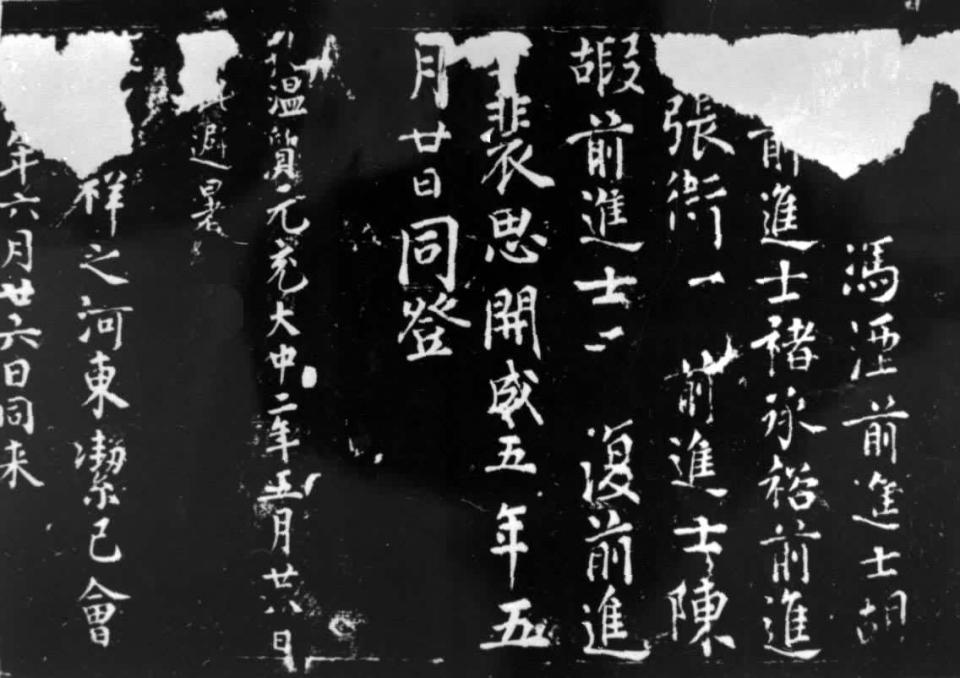 馮湮前進士胡
前進士褚承裕前進
張衙一 前進士陳
嘏前進士二 復前進
裴思開成五年五
月廿日同登
温質元充大中二年五月廿八日
避暑
祥之河東潔己會
年六月廿六日同来